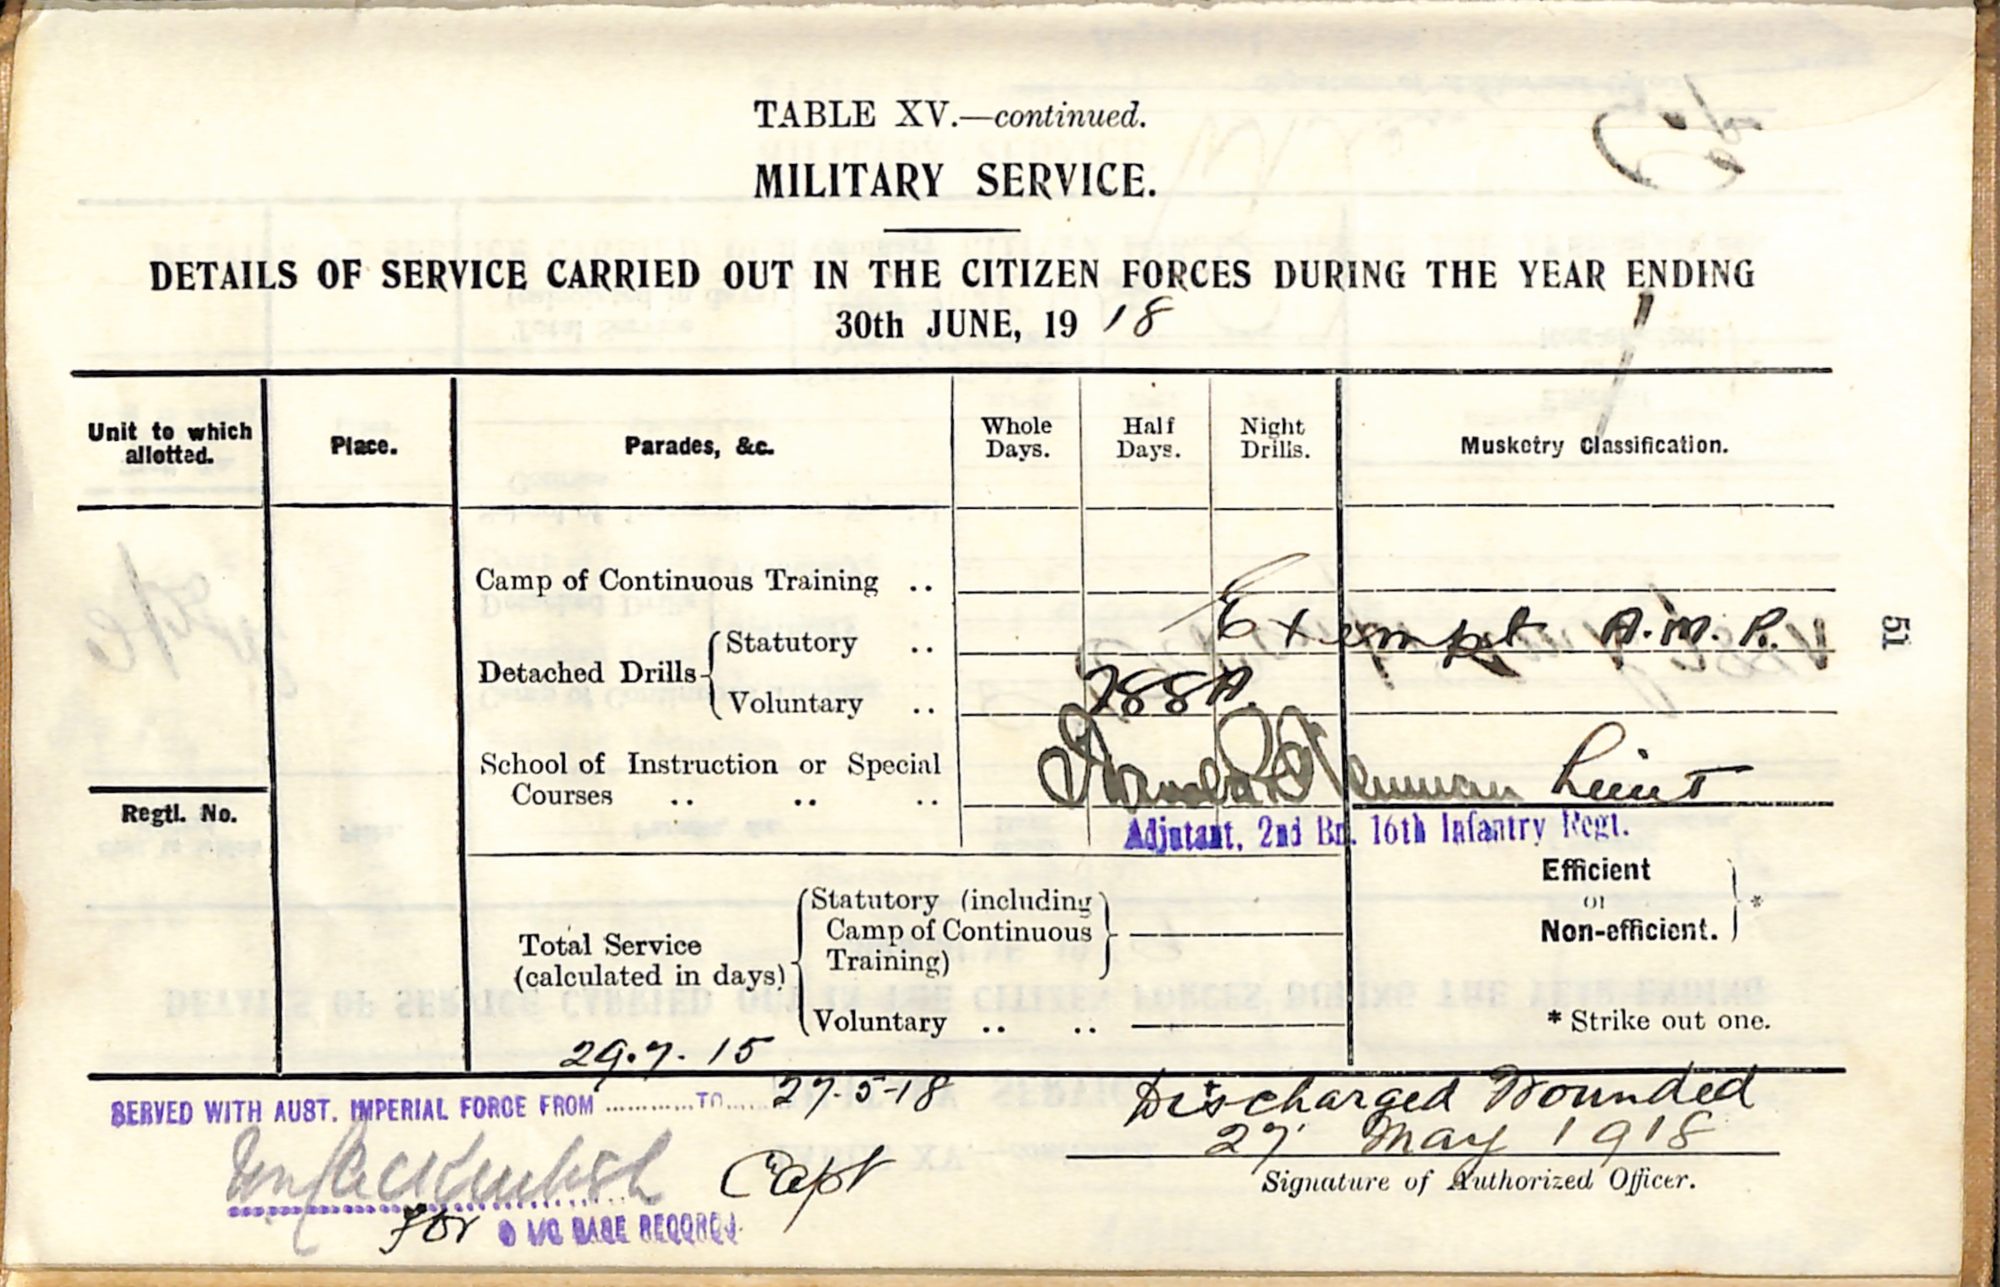 TABLE XV.—continued.
MILITARY SERVICE.
DETAILS OF SERVICE CARRIED OUT IN THE CITIZEN FORCES DURING THE YEAR ENDING
30th JUNE, 19 18
Unit to which allotted.
Place.
Parades, &c.
Whole Days.
Half Days.
Night Drills.
Musketry Classification.
Camp of Continuous Training ..
Exempt A.M.R.
Detached Drills { Statutory ..
Voluntary ..
288A.
School of Instruction or Special
Courses .. .. ..
Lieut
Adjutant, 2nd Bn. 16th Infantry Regt.
Regtl. No.
Total Service
(calculated in days)
Statutory (including
Camp of Continuous
Training)
Voluntary .. ..
Efficient
or
Non-efficient. } *
* Strike out one.
51
29.7.15
SERVED WITH AUST. IMPERIAL FORCE FROM ............ TO ....... 27-5-18
Discharged Wounded
27 May 1918
Capt
Signature of Authorized Officer.
For O I/C BASE RECORDS.